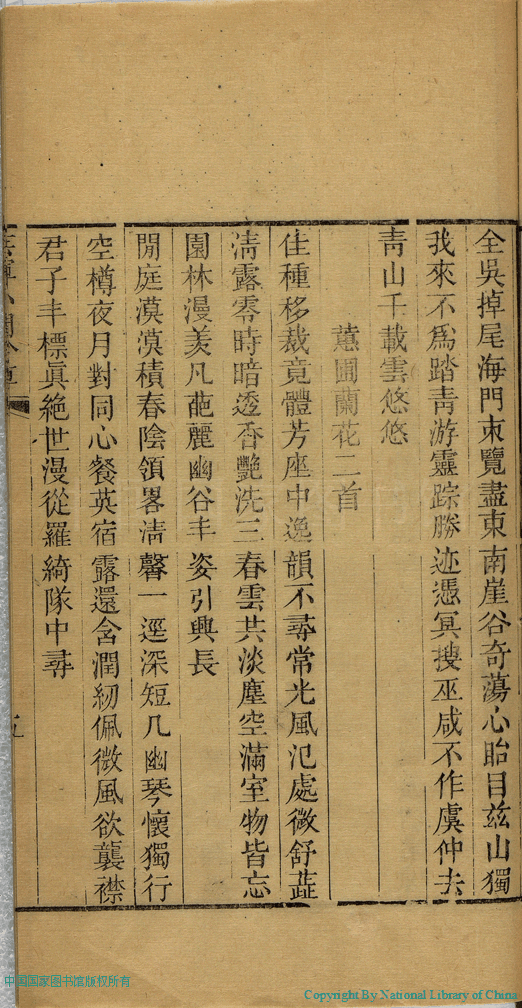 全吳掉尾海門東覽盡東南崖谷奇蕩心眙目茲山獨
我來不爲踏靑游靈踪勝迹憑冥搜巫咸不作虞仲去
靑山千載雲悠悠
蕙圃蘭花二首
佳種移栽竟體芳座中逸韻不尋常光風氾處微舒蘂
淸露零時暗透香艷洗三春雲共淡塵空滿室物皆忘
園林漫羡凡葩麗幽谷丰姿引興長
閒庭漠漠積春陰領畧淸馨一逕深短几幽琴懷獨行
空樽夜月對同心餐英宿露還含潤紉佩微風欲襲襟
君子丰標眞絕世漫從羅綺隊中尋
五
中国国家图书馆版权所有
Copyright By National Library of China